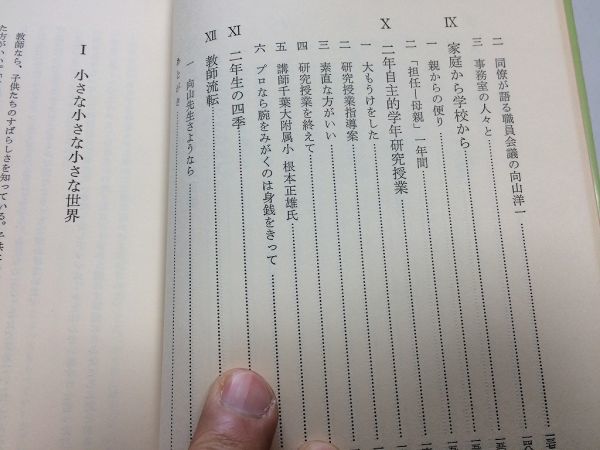 二 同僚が語る職員会議の向山洋一
三 事務室の人々と
Ⅸ 家庭から学校から
一 親からの便り
二 「担任―母親」一年間
Ⅹ 二年自主的学年研究授業
一 大もうけをした
二 研究授業指導案
三 素直な方がいい
四 研究授業を終えて
五 講師千葉大附属小 根本正雄氏
六 プロなら腕をみがくのは身銭をきって
Ⅺ 二年生の四季
Ⅻ 教師流転
一 向山先生さようなら
あとがき
Ⅰ 小さな小さな小さな世界
教師なら、子供たちのすばらしさを知っている。子供に